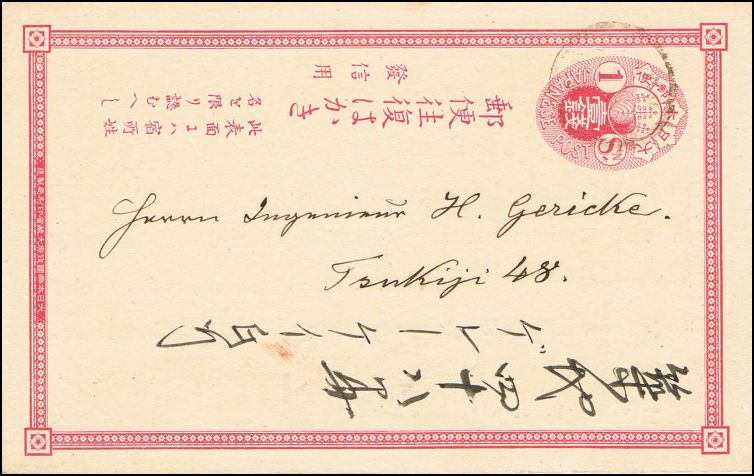 郵便往復はかき
發信用
此表面ニハ宿所姓
名を限り認むへし
大日本帝國郵便
壹錢
JAPANESE POST
1 SN
Herrn Ingenieur H. Gericke.
Tsukiji 48.
築地四十八号
ゲレーケイ